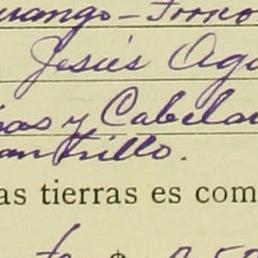 urango-Torreo
Jesús Agu
as y Cabela
antrillo.
as tierras es com